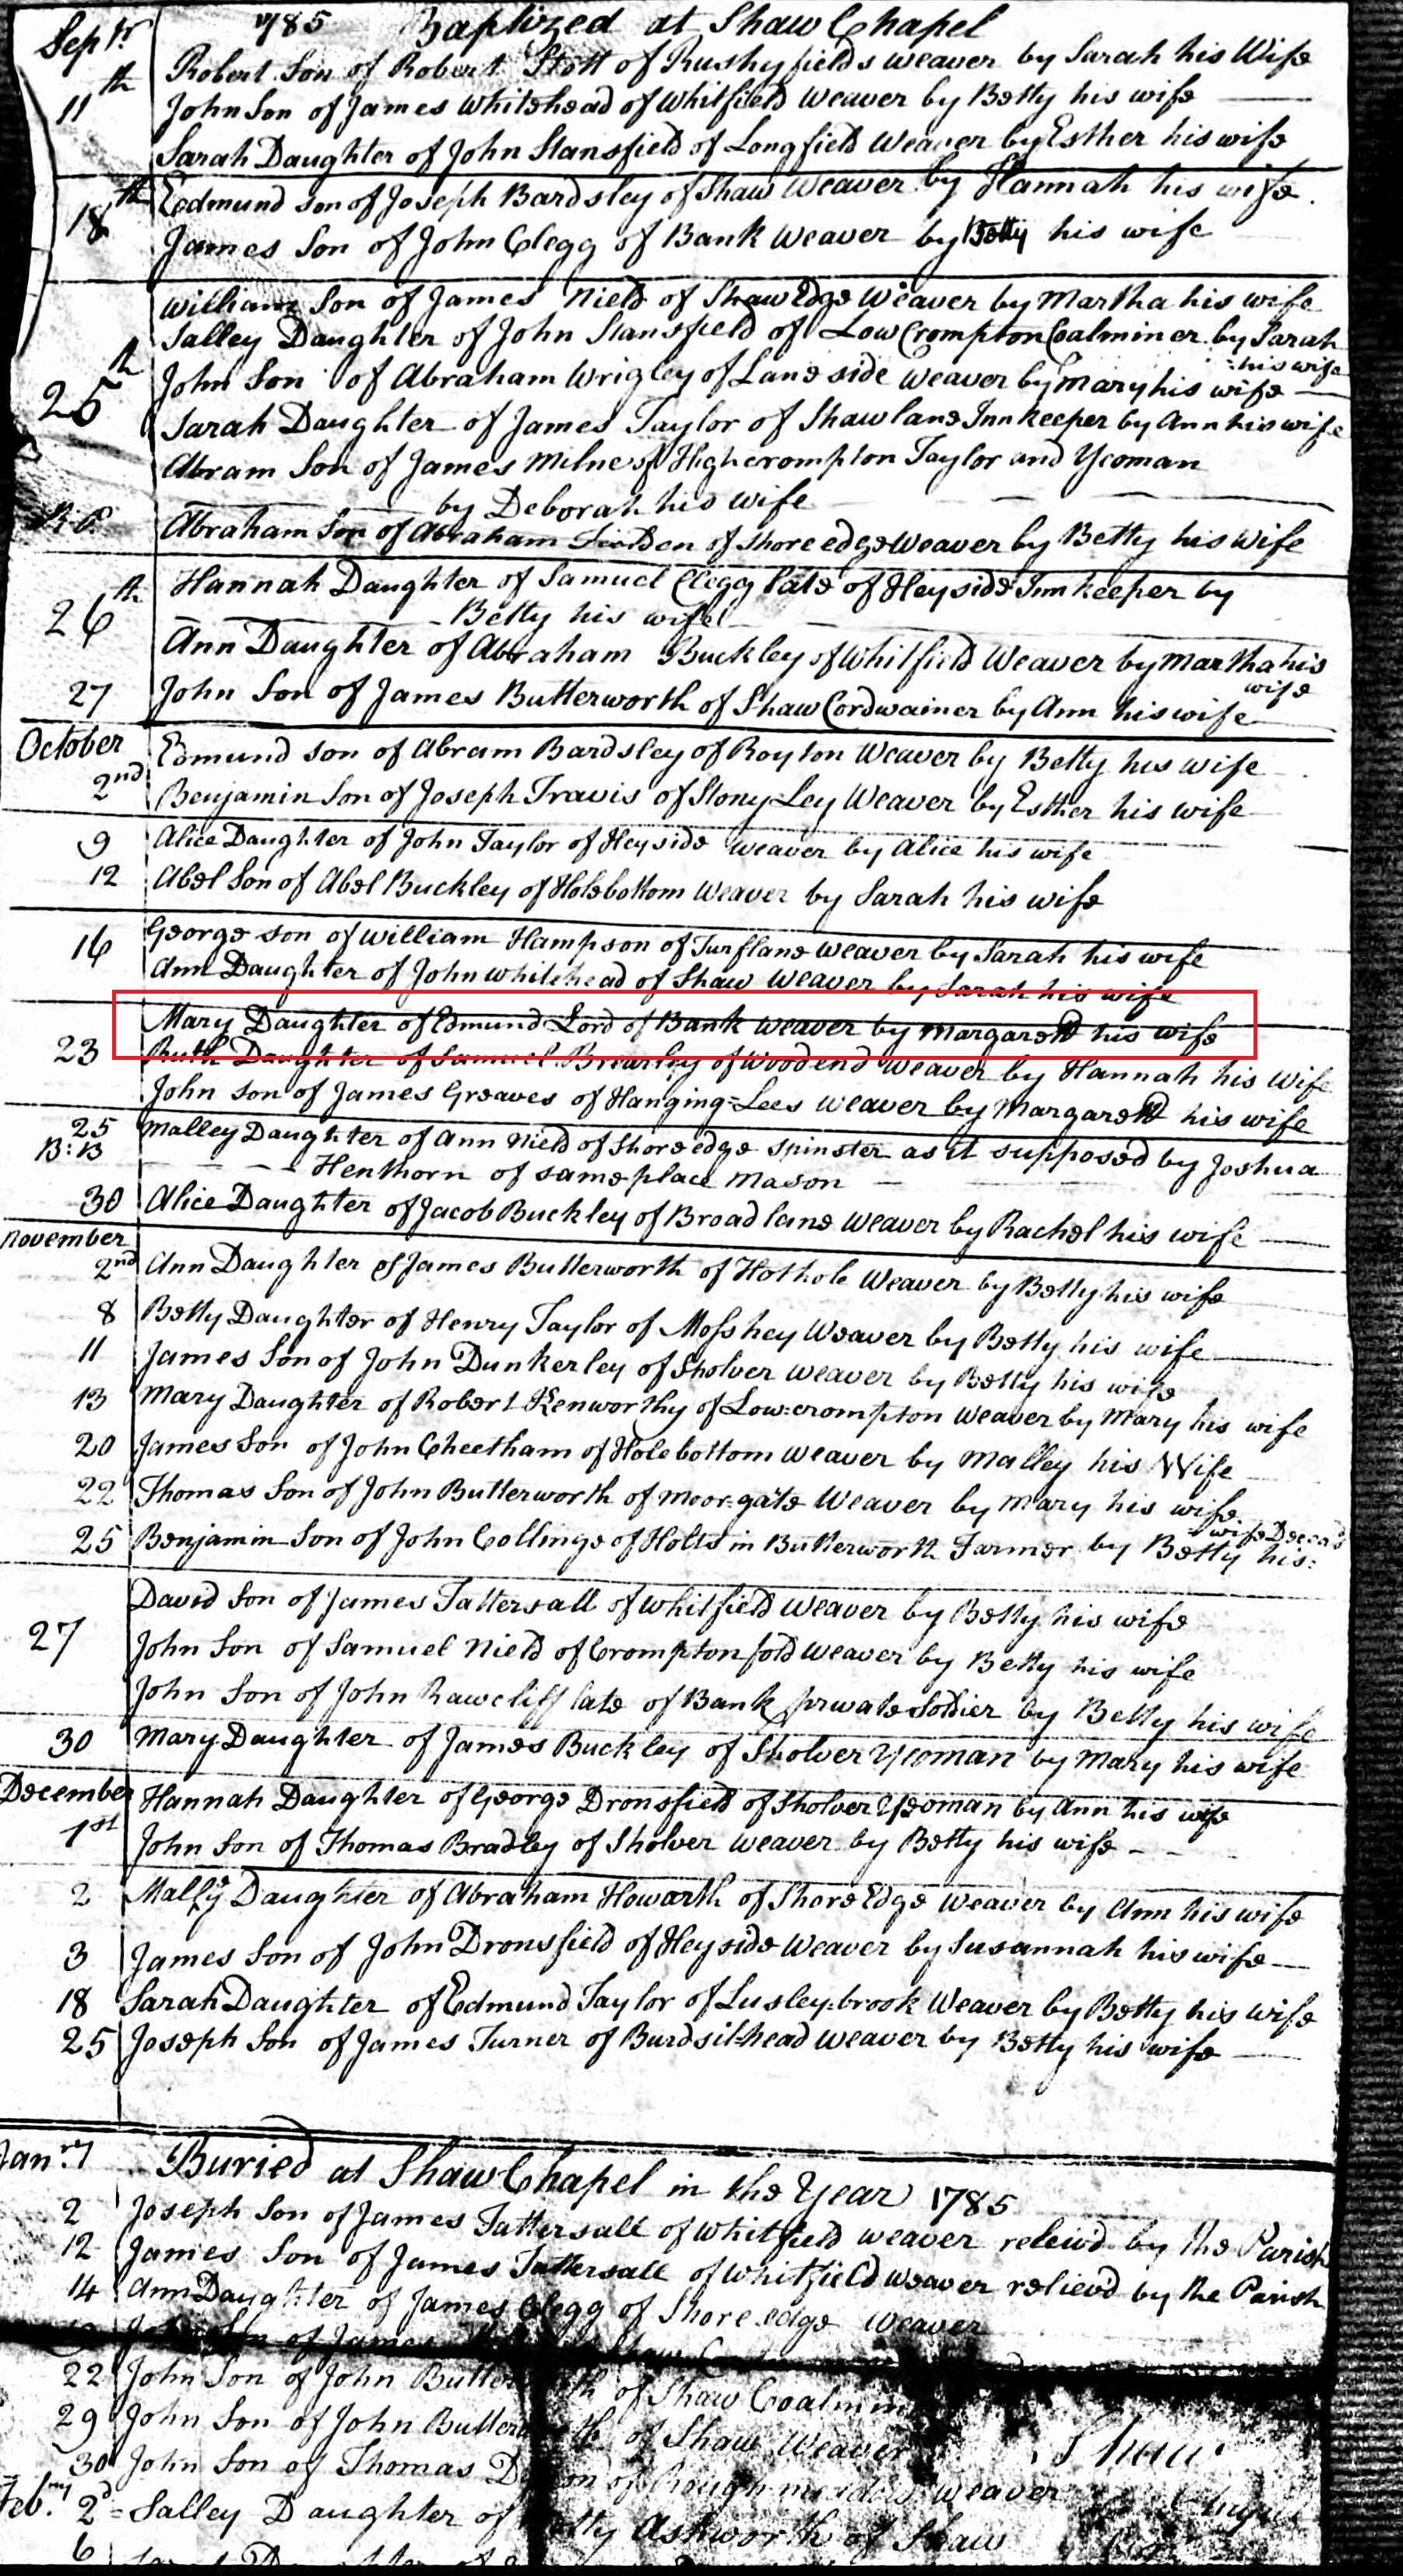 Sepr 1785 Baptized at Shaw Chapel
Robert Son of Robert Stott of Rushyfields weaver by Sarah his Wife
11th John Son of James Whitehead of Whitfield Weaver by Betty his wife
Sarah Daughter of John Stansfield of Longfield Weaver by Esther his wife
18th Edmund son of Joseph Bardsley of Shaw Weaver by Hannah his wife.
James Son of John Clegg of Bank Weaver by Betty his wife
William Son of James Nield of Shaw Edge Weaver by Martha his wife
Salley Daughter of John Stansfield of Low Crompton Coalminer by Sarah
his wife
25th John Son of Abraham Wrigley of Lane side weaver by Mary his wife
Sarah Daughter of James Taylor of Shaw lane Innkeeper by Ann his wife
Abram Son of James Milne of Highcrompton Taylor and Yeoman
by Deborah his wife
Abraham Son of Abraham Fielden of Shore edge Weaver by Betty his Wife
26th Hannah Daughter of Samuel Clegg late of Heyside Innkeeper by
Betty his wife
Ann Daughter of Abraham Buckley of Whitfield Weaver by Martha his
wife
27 John Son of James Butterworth of Shaw Cordwainer by Ann his wife
October Edmund son of Abram Bardsley of Royton Weaver by Betty his wife
2nd Benjamin Son of Joseph Travis of Stony Ley Weaver by Esther his wife
9 Alice Daughter of John Taylor of Heyside weaver by Alice his wife
12 Abel Son of Abel Buckley of Holebottom Weaver by Sarah his wife
16 George son of William Hampson of Turflane Weaver by Sarah his wife
Ann Daughter of John Whitehead of Shaw Weaver by Sarah his wife
Mary Daughter of Edmund Lord of Bank weaver by Margarett his wife
23 Ruth Daughter of Samuel Brearley of Woodend Weaver by Hannah his Wife
John son of James Greaves of Hanging-Lees Weaver by Margarett his wife
25 Malley Daughter of Ann Nield of Shore edge Spinster as it supposed by Joshua
B:B Henthorn of same place Mason
30 Alice Daughter of Jacob Buckley of Broad lane Weaver by Rachel his wife
November
2nd Ann Daughter of James Butterworth of Hothole Weaver by Betty his wife
8 Betty Daughter of Henry Taylor of Moss hey Weaver by Betty his wife
11 James Son of John Dunkerley of Sholver Weaver by Betty his wife
13 Mary Daughter of Robert Kenworthy of Low-crompton Weaver by Mary his wife
20 James Son of John Cheetham of Holebottom Weaver by Malley his Wife
22 Thomas Son of John Butterworth of Moor-gate Weaver by Mary his wife
wife
25 Benjamin Son of John Collinge of Holts in Butterworth Farmer by Betty his
David Son of James Tattersall of Whitfield Weaver by Betty his wife
27 John Son of Samuel Nield of Crompton fold Weaver by Betty his wife
John Son of John Rawcliff late of Bank private Soldier by Betty his wife
30 Mary Daughter of James Buckley of Sholver Yeoman by Mary his wife
December Hannah Daughter of George Dronsfield of Sholver Yeoman by Ann his wife
1st John Son of Thomas Bradley of Sholver Weaver by Betty his wife
2 Mally Daughter of Abraham Howarth of Shore Edge Weaver by Ann his wife
3 James Son of John Dronsfield of Heyside Weaver by Susannah his wife
18 Sarah Daughter of Edmund Taylor of Lusley-brook Weaver by Betty his wife
25 Joseph Son of James Turner of Burdsil-head weaver by Betty his wife
Janry Buried at Shaw Chapel in the Year 1785
2 Joseph Son of James Tattersall of Whitfield weaver releivd by the Parish
12 James Son of James Tattersall of Whitfield weaver relievd by the Parish
14 Ann Daughter of James Clegg of Shore edge Weaver
Son of James
22 John Son of John of Shaw
29 John Son of John of Shaw Weaver
30 John Son of Thomas of weaver
Shaw
2d Salley Daughter of Ashworth of Shaw
6